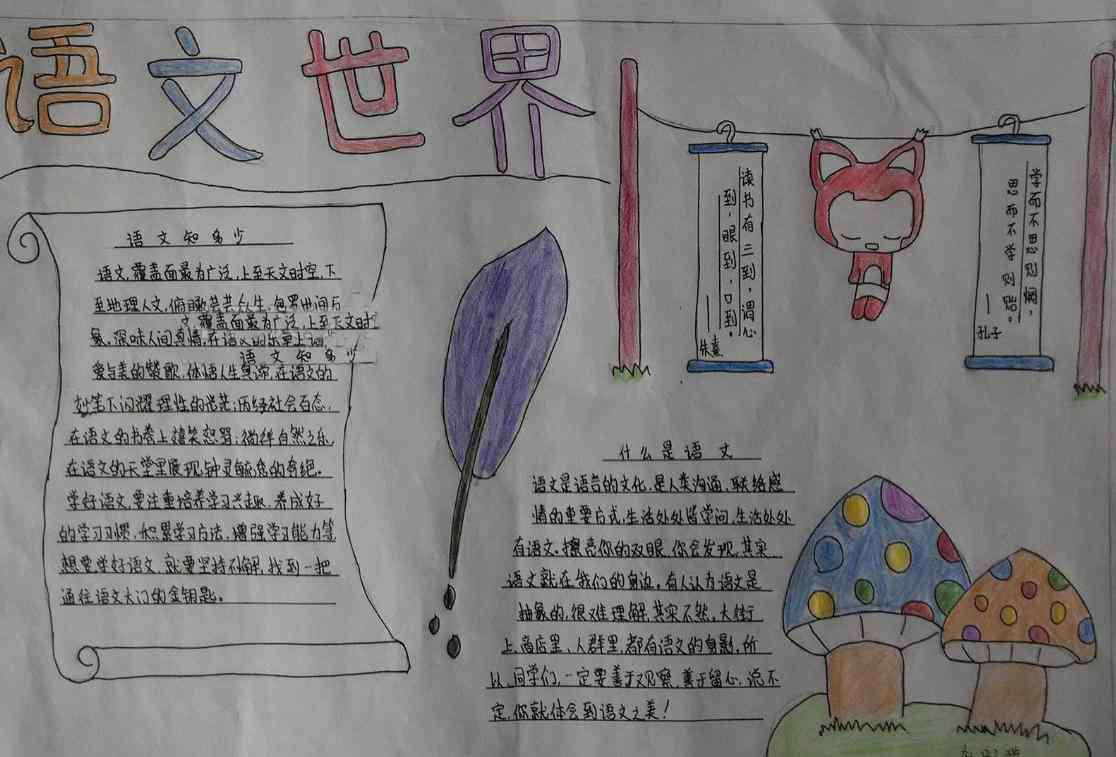 语文世界
语文知多少
语文,覆盖面最为广泛,上至天文时空,下
至地理人文,俯瞰芸芸众生,包罗世间万
覆盖面最为广泛,上至天文时
象。深味人间真情,在语文的乐章上谱
语文知多少
爱与美的赞歌,体悟人生真谛,在语文的
妙笔下闪耀理性的光芒;历经社会百态,
在语文的书卷上嬉笑怒骂;徜徉自然之乐,
在语文的天堂里展现钟灵毓秀的奇绝。
学好语文,要注重培养学习兴趣,养成好
的学习习惯,积累学习方法,增强学习能力等
想要学好语文,就要坚持不懈,找到一把
通往语文大门的金钥匙。
读书有三到,谓心
到,眼到,口到。
——朱熹
学而不思则惘,
思而不学则殆。
——孔子
什么是语文
语文是语言的文化,是人类沟通、联络感
情的重要方式,生活处处皆学问,生活处处
有语文。擦亮你的双眼,你会发现,其实
语文就在我们的身边。有人认为语文是
抽象的,很难理解,其实不然。大街
上、商店里、人群里,都有语文的身影,所
以,同学们,一定要善于观察,善于留心,说不
定,你就体会到语文之美!